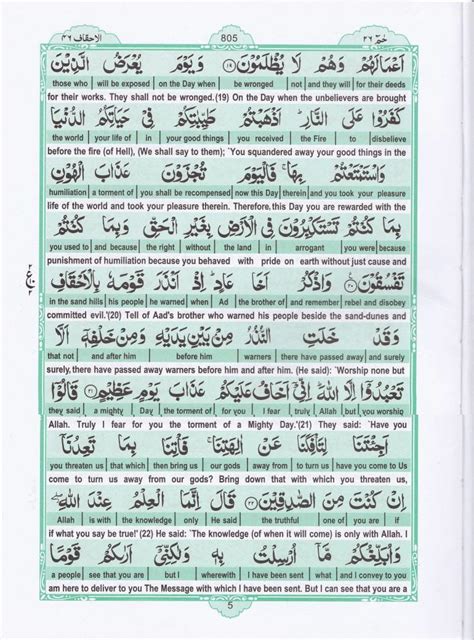 الاحقاف ٤٦ 805 حٰمٓ ٢٦
اَعْمَالَهُمْ وَهُمْ لَا يُظْلَمُوْنَ ۝١٩ وَيَوْمَ يُعْرَضُ الَّذِيْنَ
those who | will be exposed | on the Day when | be wronged | not | and they will | for their deeds
for their works. They shall not be wronged.(19) On the Day when the unbelievers are brought
كَفَرُوْا عَلَى النَّارِ ؕ اَذْهَبْتُمْ طَيِّبٰتِكُمْ فِيْ حَيَاتِكُمُ الدُّنْيَا
the world | your life of | in | your good things | you received | the Fire | to | disbelieve
before the fire (of Hell), (We shall say to them); `You squandered away your good things in the
وَاسْتَمْتَعْتُمْ بِهَا ۚ فَالْيَوْمَ تُجْزَوْنَ عَذَابَ الْهُوْنِ
humiliation | a torment of | you shall be recompensed | now this Day | therein | and you took your pleasure
life of the world and took your pleasure therein. Therefore, this Day you are rewarded with the
بِمَا كُنْتُمْ تَسْتَكْبِرُوْنَ فِي الْاَرْضِ بِغَيْرِ الْحَقِّ وَبِمَا كُنْتُمْ
you used to | and because | the right | without | the land | in | arrogant | you were | because
punishment of humiliation because you behaved with pride on earth without just cause and
تَفْسُقُوْنَ ۝٢٠ وَاذْكُرْ اَخَا عَادٍ ؕ اِذْ اَنْذَرَ قَوْمَهٗ بِالْاَحْقَافِ
in the sand hills | his people | he warned | when | Ad | the brother of | and remember | rebel and disobey
committed evil.'(20) Tell of Aad's brother who warned his people beside the sand-dunes and
وَقَدْ خَلَتِ النُّذُرُ مِنْۢ بَيْنِ يَدَيْهِ وَمِنْ خَلْفِهٖۤ اَلَّا
that not | and after him | before him | warners | there have passed away | and surely
surely, there have passed away warners before him and after him. (He said): `Worship none but
تَعْبُدُوْۤا اِلَّا اللّٰهَ ؕ اِنِّيْۤ اَخَافُ عَلَيْكُمْ عَذَابَ يَوْمٍ عَظِيْمٍ ۝٢١ قَالُوْۤا
they said | a mighty | Day | the torment of | for you | I fear | truly | Allah | but | you worship
Allah. Truly I fear for you the torment of a Mighty Day.'(21) They said: `Have you
اَجِئْتَنَا لِتَاْفِكَنَا عَنْ اٰلِهَتِنَا ۚ فَاْتِنَا بِمَا تَعِدُنَاۤ
you threaten us | that which | then bring us | our gods | away from | to turn us | have you come to Us
come to turn us away from our gods? Bring down that with which you threaten us
اِنْ كُنْتَ مِنَ الصّٰدِقِيْنَ ۝٢٢ قَالَ اِنَّمَا الْعِلْمُ عِنْدَ اللّٰهِ ؗ
Allah | is with | the knowledge | only | He said | the truthful | one of | you are | if
if what you say be true!' (22) He said: `The knowledge (of when it will come) is only with Allah. I
وَاُبَلِّغُكُمْ مَّاۤ اُرْسِلْتُ بِهٖ وَلٰكِنِّيْۤ اَرٰىكُمْ قَوْمًا
a people | see that you are | but I | wherewith | I have been sent | what | and I convey to you
am here to deliver to you The Message with which I have been sent. But I can see that you are a
5